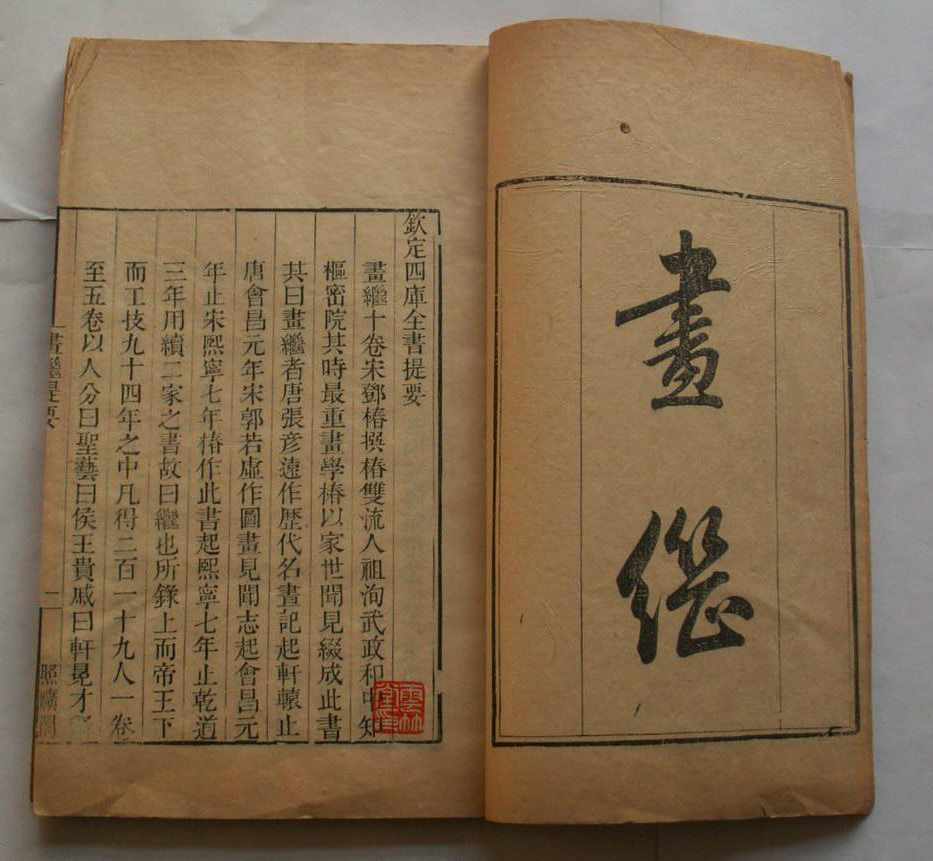 畫繼
欽定四庫全書提要
畫繼十卷宋鄧椿撰椿雙流人祖洵武政和中知
樞密院其時最重畫學椿以家世聞見綴成此書
其曰畫繼者唐張彥遠作歷代名畫記起軒轅止
唐會昌元年宋郭若虛作圖畫見聞志起會昌元
年止宋熙寧七年椿作此書起熙寧七年止乾道
三年用續二家之書故曰繼也所錄上而帝王下
而工技九十四年之中凡得二百一十九人一卷
至五卷以人分曰聖藝曰侯王貴戚曰軒冕才
畫繼提要
一
照曠閣